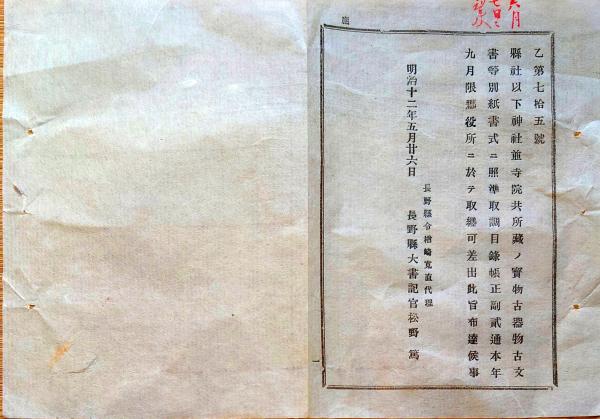 乙第七拾五號
縣社以下神社並寺院共所藏ノ寳物古器物古文
書等別紙書式ニ照準取調目錄帳正副貳通本年
九月限郡役所ニ於テ取纒可差出此旨布達候事
明治十二年五月廿六日
長野縣令楢崎寛直代理
長野縣大書記官松野 篤